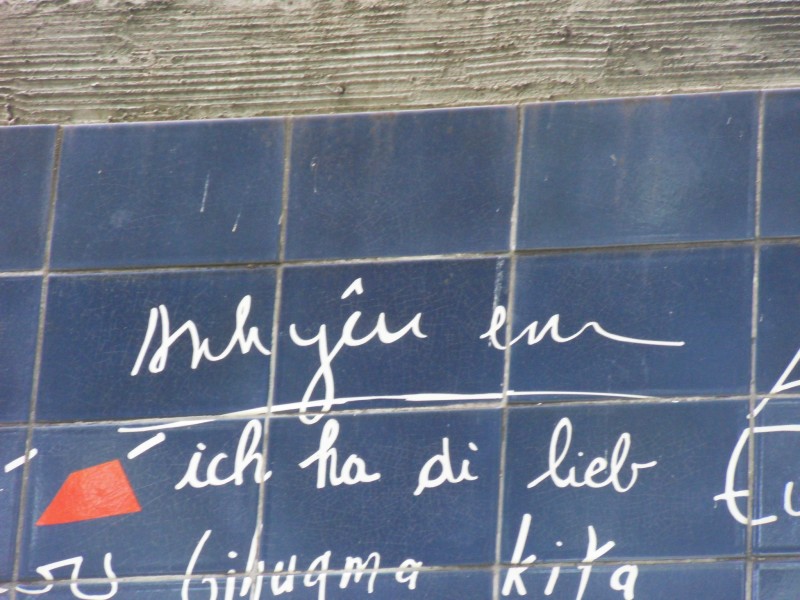 Anh yêu em
ich ha di lieb
Gihugma kita